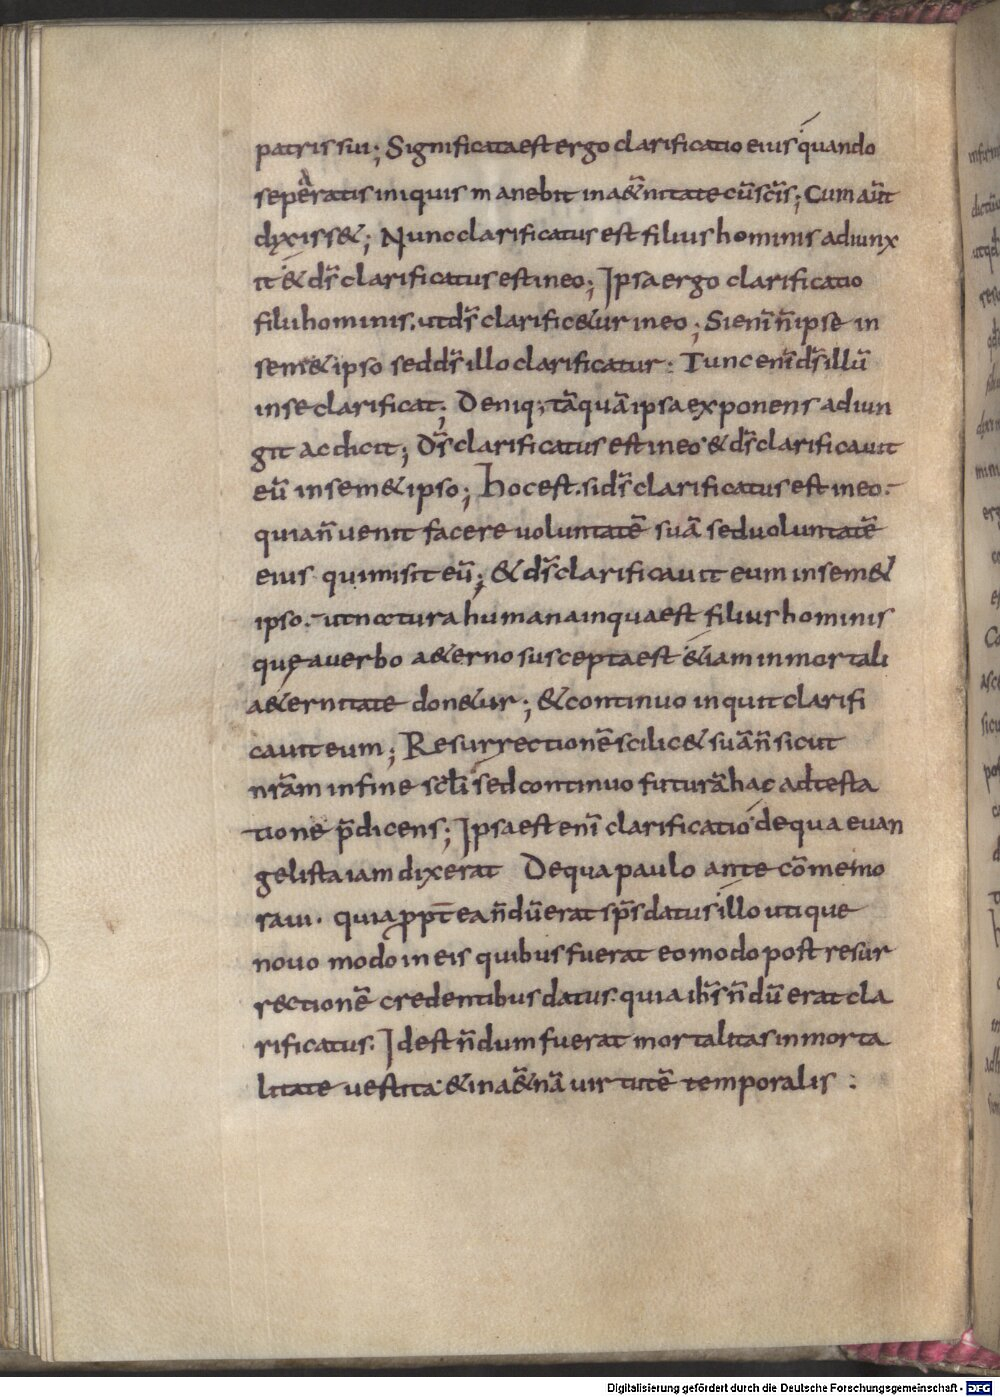 patris sui; Significata est ergo clarificatio eius quando
sepératis iniquis manebit in a&̄nitate cū sc̄is; Cum aūt
dyxiss&; Nunc clarificatus est filius hominis adiunx
it & ds̄ clarificatus est in eo; Ipsa ergo clarificatio
filii hominis. ut ds̄ clarific&ur in eo; Si enī n̄ ipse in
sem& ipso sed ds̄ illo clarificatur: Tunc enī ds̄ illū
in se clarificat; Deniq; tāquā ipsa exponens adiun
git ac dicit; Ds̄ clarificatus est in eo & ds̄ clarificauit
eū in sem& ipso; Hoc est. si ds̄ clarificatus est in eo.
quia n̄ uenit facere uoluntatē suā sed uoluntatē
eius qui misit eū; & ds̄ clarificauit eum in sem&
ipso. ut natura humana in qua est filius hominis
quę a uerbo a&erno suscepta est &iam inmortali
a&ernitate don&ur; & continuo inquit clarifi
cauit eum; Resurrectionē scilic& suā n̄ sicut
nr̄am in fine scl̄i sed continuo futurā hac adtesta
tione p̄dicens; Ipsa est enī clarificatio de qua euan
gelista iam dixerat De qua paulo ante cōmemo
raui. quia ppt̄ea n̄dū erat sps̄ datus illo utique
nouo modo in eis quibus fuerat eo modo post resur
rectionē credentibus datus. quia ihs̄ n̄dū erat cla
rificatus. Id est n̄dum fuerat mortalitas inmorta
litate uestita & in a&̄nā uirtutē temporalis :
Digitalisierung gefördert durch die Deutsche Forschungsgemeinschaft - DFG